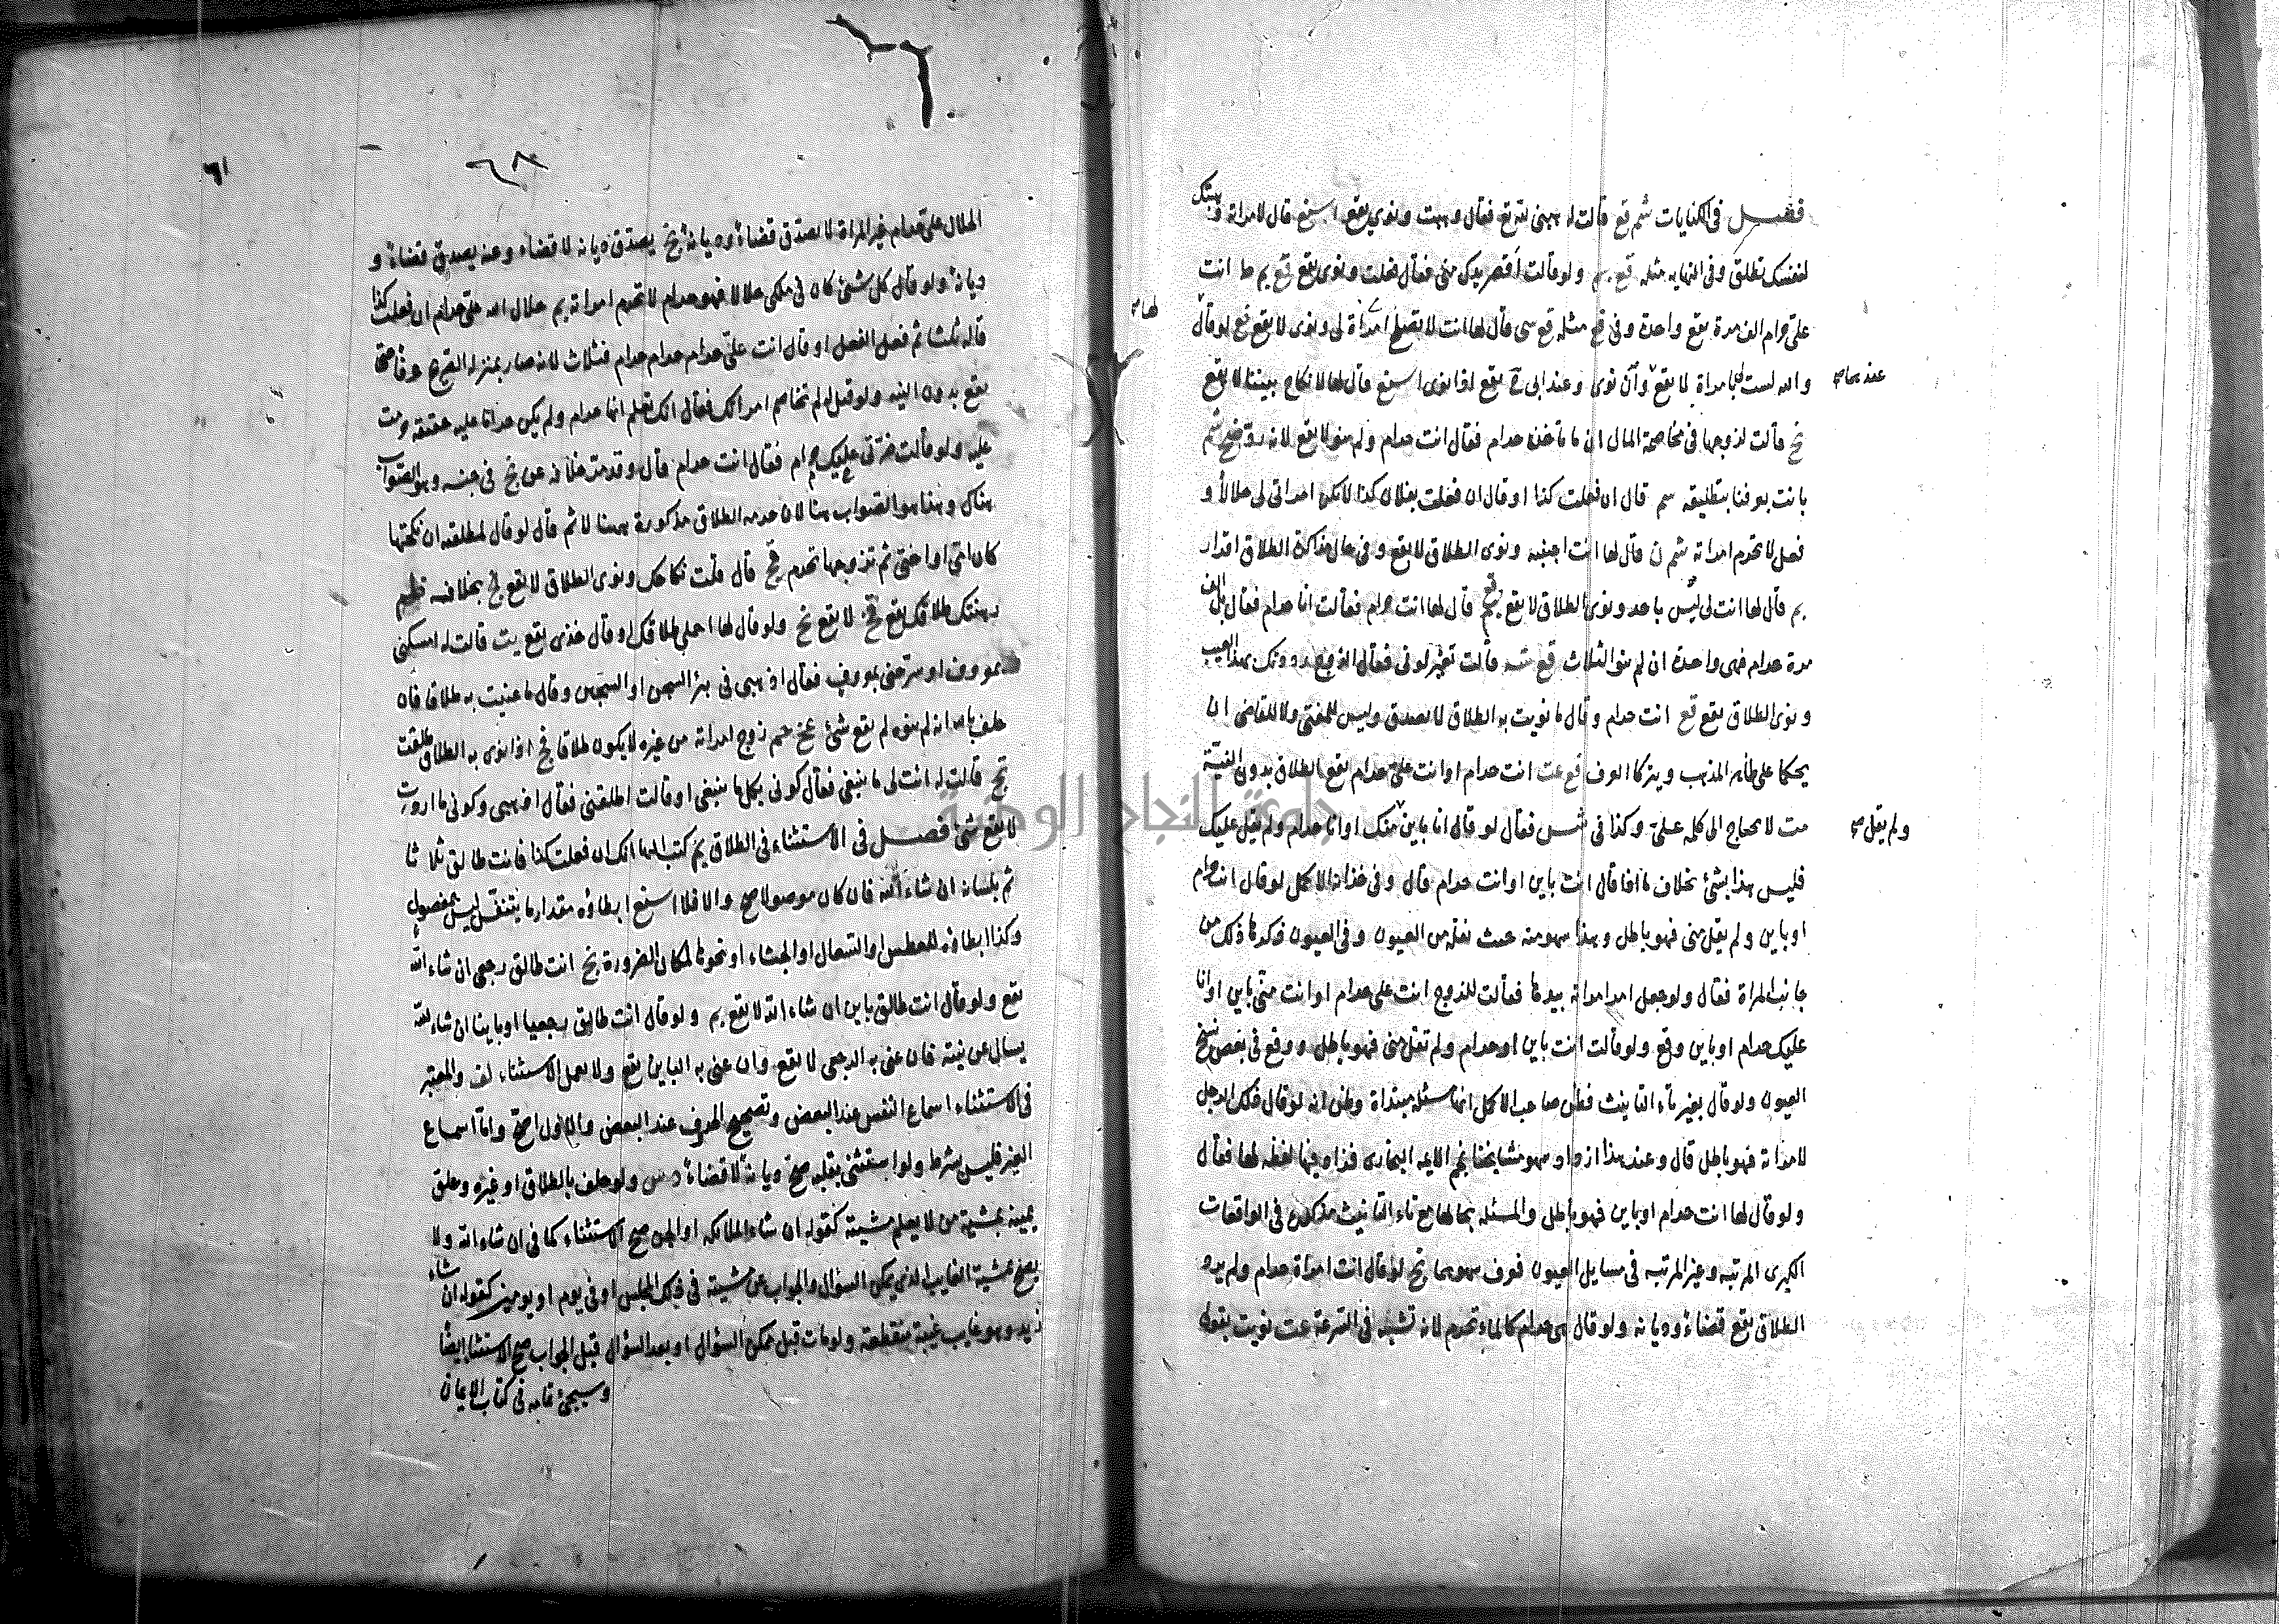 فصل في الكنايات شم قع قالت له هبني لله تع فقال وهبت ونوى يقع اسنع قال لامراة وهبتك
لنفسك تطلق وفي النهايه مثله قع بم ولو قالت أقصر يدك مني فقال فعلت ونوى يقع قع بم ط انت
علي حرام الف مرة يقع واحدة وفي قع مثله قع سى قال لها انت لا تصلح امراة لي ونوى لا يقع نح لو قال
والله لست لي بامراة لا يقع وان نوى وعند ابي ح يقع اذا نوى اسنع قال لها لا نكاح بيننا لا يقع
عند هما صح
نح قالت لزوجها في مخاصمة المال ان ما تأخذه حرام فقال انت حرام ولم ينو لا يقع لانه رد
بانت بعرفنا بتطليقه سم قال ان فعلت كذا او قال ان فعلت بفلان كذا لا يكن امراتي لي حلالا و
فعل لا تحرم امراته شم ن قال لها انت اجنبيه ونوى الطلاق لا يقع وفي حال مذاكرة الطلاق اقرار
بم قال لها انت لي ليس باحد ونوى الطلاق لا يقع قال لها انت حرام فقالت انا حرام فقال بلى الف
مرة حرام فهي واحدة ان لم ينو الثلاث قع قالت فقال الزوج دونك بهذا العيب
ونوى الطلاق يقع قع انت حرام وقال ما نويت به الطلاق لا يصدق وليس للمفتي ولا للقاضي ان
يحكما على ظاهر المذهب ويتركا العرف قع عت انت حرام او انت علي حرام يقع الطلاق بدون النية
مت لا يحتاج الى كله علي وكذا في شس فقال لو قال انا باين منك او انا حرام ولم يقل عليك
ولم يقل صح
فليس هذا بشئ بخلاف ما اذا قال انت باين او انت حرام قال وفي خزانة الاكمل لو قال انت حرام
او باين ولم يقل مني فهو باطل وهذا سهو منه حيث نقله من العيون وفي العيون ذكر ذلك من
جانب المراة فقال ولو جعل امر امراته بيدها فقالت للزوج انت علي حرام او انت مني باين او انا
عليك حرام او باين وقع ولو قالت انت باين او حرام ولم تقل مني فهو باطل ووقع في بعض نسخ
العيون ولو قال بغير تاء التانيث فظن صاحب الاكمل انها مسئله مبتداة وظن انه لو قال ذلك الرجل
لامراته فهو باطل قال وعند هذا ازداد سهو مشايخنا نجم الايمه البخاري فزاد فيها لفظه لها فقال
ولو قال لها انت حرام او باين فهو باطل والمسئله بحالها مع تاء التانيث مذكورة في الواقعات
الكبرى المرتبه وغير المرتبه في مسايل العيون فعرف سهوهما نح لو قال انت امراة حرام ولم يرد
الطلاق يقع قضاء وديانه ولو قال هي حرام كالماء تحرم لانه تشبيه في السرعة عت نويت بقولي
لها صح
٦١
٦٨
الحلال علي حرام غير المراة لا يصدق قضاء وديانة نح يصدق ديانه لا قضاء وعنه يصدق قضاء و
ديانة ولو قال كل شئ كان في ملكي حلالا فهو حرام لا تحرم امراته بم حلال الله علي حرام ان فعلت كذا
قاله ثلثا ثم فعل الفعل او قال انت علي حرام حرام حرام فثلاث لانه صار بمنزلة الصريح
يقع بدون النيه ولو قيل له لم تخاصم امراتك فقال انك تعلم انها حرام ولم يكن حراما عليه حقيقه
عليه ولو قالت ضرتي عليك حرام فقال انت حرام قال وقد مر خلافه عن نح في جنسه وهو الصواب
هناك وهذا هو الصواب هنا لان حرمه الطلاق مذكورة ههنا لا ثم قال لو قال لمطلقته ان نكحتها
كان امي او اختي ثم تزوجها تحرم نح قال نكاحك ونوى الطلاق لا يقع نح بخلافه
رهنتك طلاقك يقع نح لا يقع نح ولو قال لها احملي طلاقك او قال خذي يقع يت قالت له امسكني
بمعروف او سرحني بمعروف فقال اذهبي في بئر السجن او السجن وقال ما عنيت به طلاقا فان
حلف بالله انه لم ينوه لم يقع شئ نح حم زوج امراته من غيره لا يكون طلاقا نح اذا نوى به الطلاق طلقت
نح قالت له انت لي ما ينبغي فقال كوني بكل ما ينبغي او قالت اطلقتني فقال اذهبي وكوني ما اردت
لا يقع شئ فصل في الاستثناء في الطلاق نح كتب اليها انك ان فعلت كذا فانت طالق ثلاثا
ثم بلسانه ان شاء الله فان كان موصولا صح والا فلا اسنع ابطاؤه مقدار ما يتنفس ليس بمفصول
وكذا ابطاؤه للعطس او السعال او الجشاء او نحوها لمكان الضرورة نح انت طالق رجعي ان شاء الله
يقع ولو قال انت طالق باين ان شاء الله لا يقع بم ولو قال انت طالق رجعيا او باينا ان شاء الله
يسال عن نيته فان عنى به الرجعي لا يقع وان عنى به الباين يقع ولا يعمل الاستثناء لف والمعتبر
في الاستثناء اسماع النفس عند البعض وتصحيح الحرف عند البعض والاول اصح واما اسماع
الغير فليس بشرط ولو استثنى بقلبه صح ديانة لا قضاء ولو حلف بالطلاق او غيره وعلق
يمينه بمشية من لا يعلم مشيته كقوله ان شاء الملائكه او الجن صح الاستثناء كما في ان شاء الله ولا
يصح بمشية الغايب الذي يمكن السؤال والجواب عن مشيته في ذلك المجلس او في يوم او يومين كقوله ان شاء
زيد وهو غايب غيبة منقطعة ولو مات قبل تمكن السؤال او بعد السؤال قبل الجواب صح الاستثنا ايضا
وسيجئ تمامه في كتاب الايمان
جامعة النجاح الوطنية